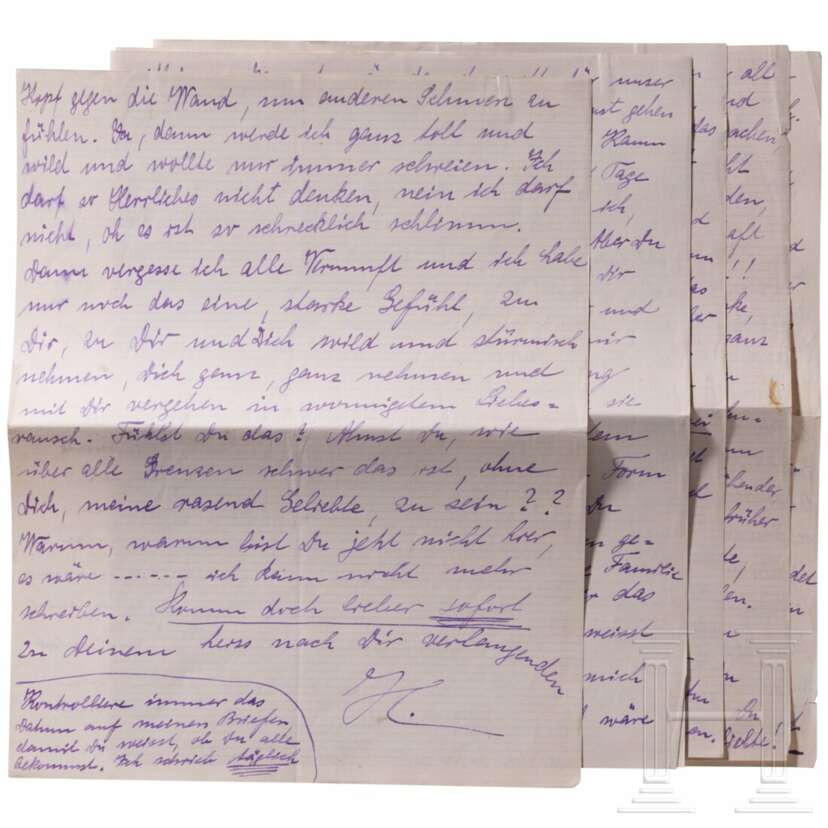 Kopf gegen die Wand, um anderen Schmerz zu
fühlen. Du, dann werde ich ganz toll und
wild und wollte nur immer schreien. Ich
darf so Herrliches nicht denken, nein ich darf
nicht, oh es ist so schrecklich schlimm.
Dann vergesse ich alle Vernunft und ich habe
nur noch das eine, starke Gefühl, zu
Dir, zu Dir und Dich wild und stürmisch
nehmen, Dich ganz, ganz nehmen und
mit Dir vergehen in wonnigstem Liebes=
rausch. Fühlst Du das? Ahnst Du, wie
über alle Grenzen schwer das ist, ohne
Dich, meine rasend Geliebte, zu sein??
Warum, warum bist Du jetzt nicht hier,
es wäre ------, ich kann nicht mehr
schreiben. Komm doch lieber sofort
zu Deinem heiss nach Dir verlangenden
H.
Kontrolliere immer das
Datum auf meinen Briefen
damit Du weisst, ob Du alle
bekommst. Ich schrieb täglich
unser
gehen
Kaum
Tage
ich,
Aber Du
Dir
und
sie
Form
Du
en ge=
Familie
das
weisst
mich
wäre
das
all
früher
Du